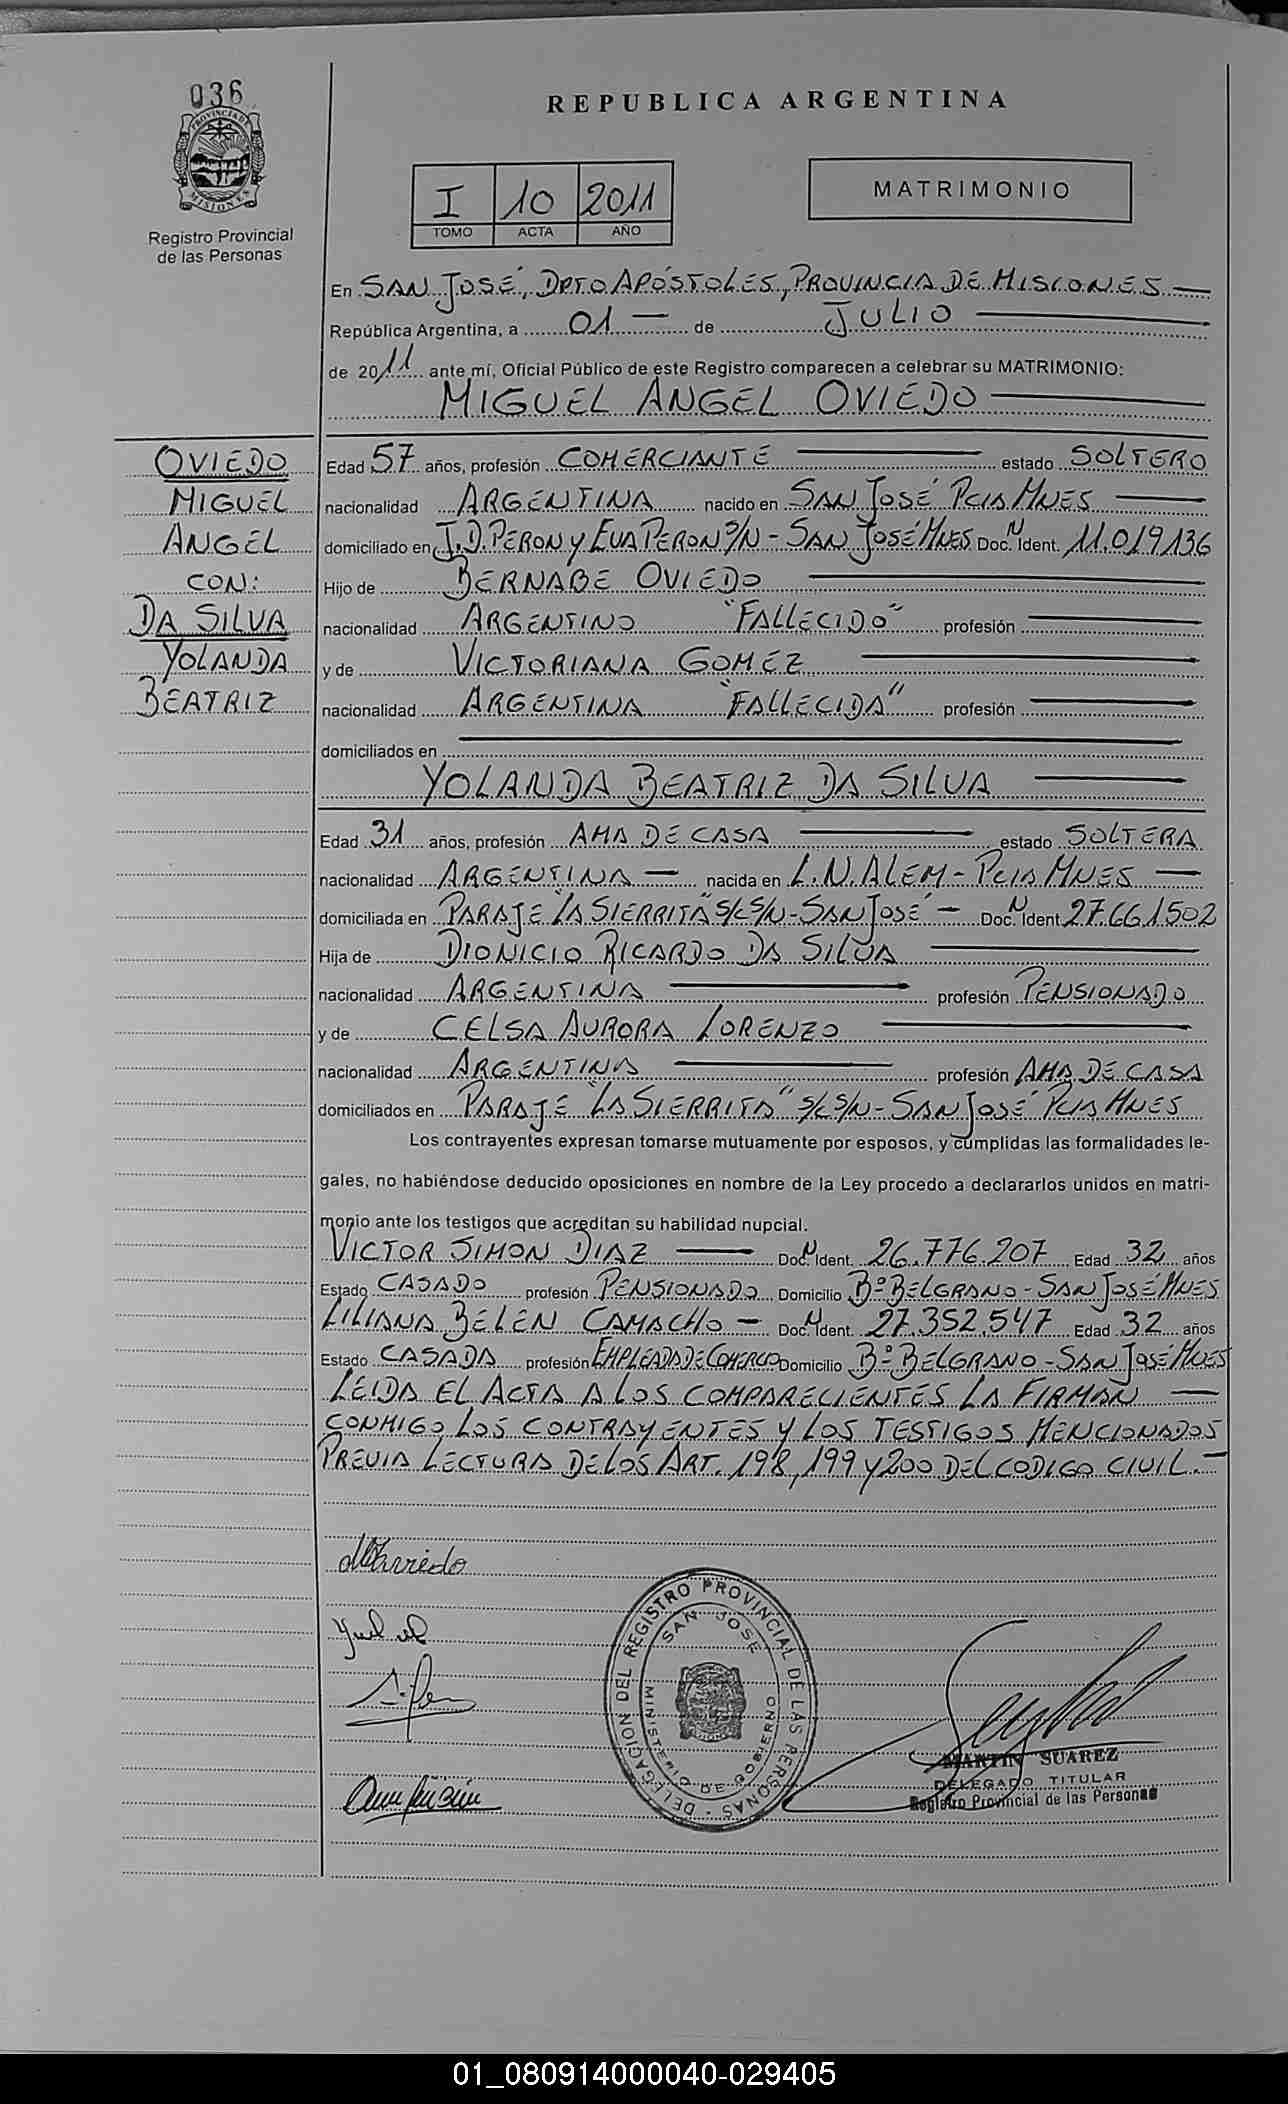 036
PROVINCIA DE
MISIONES
Registro Provincial
de las Personas
REPUBLICA ARGENTINA
I 10 2011
TOMO ACTA AÑO
MATRIMONIO
En SAN JOSÉ, DPTO APÓSTOLES, PROVINCIA DE MISIONES
República Argentina, a 01 de JULIO
de 2011 ante mí, Oficial Público de este Registro comparecen a celebrar su MATRIMONIO:
MIGUEL ANGEL OVIEDO
OVIEDO
MIGUEL
ANGEL
CON:
DA SILVA
YOLANDA
BEATRIZ
Edad 57 años, profesión COMERCIANTE estado SOLTERO
nacionalidad ARGENTINA nacido en SAN JOSÉ PCIA MNES
domiciliado en J.D. PERON Y EVA PERON S/N - SAN JOSÉ MNES Doc. N Ident. 11.019.136
Hijo de BERNABE OVIEDO
nacionalidad ARGENTINO "FALLECIDO" profesión
y de VICTORIANA GOMEZ
nacionalidad ARGENTINA "FALLECIDA" profesión
domiciliados en
YOLANDA BEATRIZ DA SILVA
Edad 31 años, profesión AMA DE CASA estado SOLTERA
nacionalidad ARGENTINA nacida en L.N. ALEM - PCIA MNES
domiciliada en PARAJE "LA SIERRITA" S/C S/N - SAN JOSÉ - Doc. N Ident. 27.661.502
Hija de DIONICIO RICARDO DA SILVA
nacionalidad ARGENTINA profesión PENSIONADO
y de CELSA AURORA LORENZO
nacionalidad ARGENTINA profesión AMA DE CASA
domiciliados en PARAJE "LA SIERRITA" S/C S/N - SAN JOSÉ PCIA MNES
Los contrayentes expresan tomarse mutuamente por esposos, y cumplidas las formalidades le-
gales, no habiéndose deducido oposiciones en nombre de la Ley procedo a declararlos unidos en matri-
monio ante los testigos que acreditan su habilidad nupcial.
VICTOR SIMON DIAZ Doc. N Ident. 26.776.207 Edad 32 años
Estado CASADO profesión PENSIONADO Domicilio Bº BELGRANO - SAN JOSÉ MNES
LILIANA BELÉN CAMACHO - Doc. N Ident. 27.352.547 Edad 32 años
Estado CASADA profesión EMPLEADA DE COMERCIO Domicilio Bº BELGRANO - SAN JOSÉ MNES
LEIDA EL ACTA A LOS COMPARECIENTES LA FIRMAN
CONMIGO LOS CONTRAYENTES Y LOS TESTIGOS MENCIONADOS
PREVIA LECTURA DE LOS ART. 198, 199 Y 200 DEL CODIGO CIVIL.-
DELEGACION DEL REGISTRO PROVINCIAL DE LAS PERSONAS
SAN JOSE
MINISTERIO DE GOBIERNO
MARTIN SUAREZ
DELEGADO TITULAR
Registro Provincial de las Personas
01_080914000040-029405